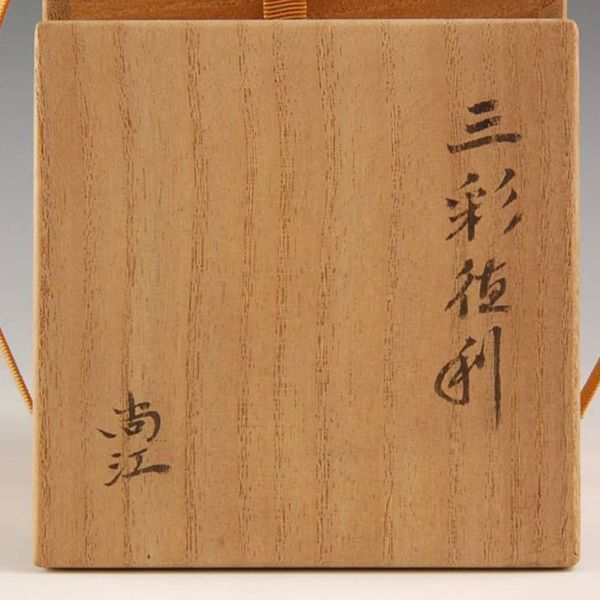 三彩徳利
尚江